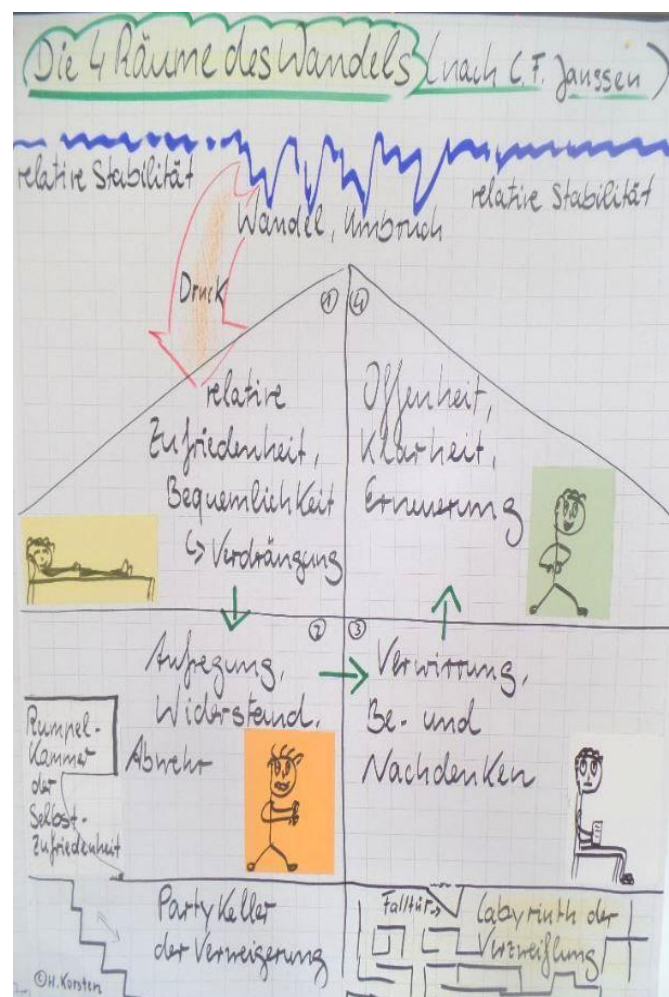 Die 4 Räume des Wandels (nach C.F. Janssen)
relative Stabilität
Wandel, Umbruch
relative Stabilität
Druck
① ④
relative
Zufriedenheit,
Bequemlichkeit
↳ Verdrängung
Offenheit,
Klarheit,
Erneuerung
② ③
Aufregung,
Widerstand,
Abwehr
Verwirrung,
Be- und
Nachdenken
Rumpel-
Kammer
der
Selbst-
Zufriedenheit
Partykeller
der Verweigerung
Falltür→
Labyrinth der
Verzweiflung
©H.Korsten